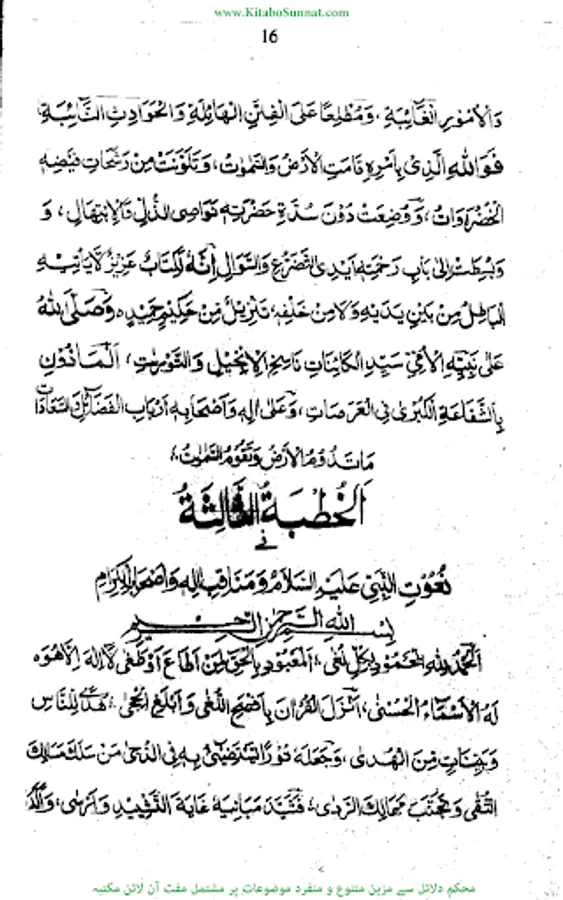 www.KitaboSunnat.com
16
وَالْاُمُوْرِ الْغَائِبَةِ، وَمُطَّلِعًا عَلَى الْفِتَنِ الْهَائِلَةِ وَالْحَوَادِثِ النَّائِبَةِ،
فَوَاللهِ الَّذِيْ بِاَمْرِهٖ قَامَتِ الْاَرْضُ وَالسَّمٰوٰتُ، وَتَلَوَّنَتْ مِنْ رَشَحَاتِ فَيْضِهِ
الْخَضْرَوَاتُ، وَوُضِعَتْ دُوْنَ سُدَّةِ حَضْرَتِهٖ نَوَاصِي الذُّلِّ وَالْاِبْتِهَالِ، وَ
وَبُسِطَتْ اِلٰى بَابِ رَحْمَتِهٖ اَيْدِي التَّضَرُّعِ وَالسُّوَالِ اِنَّهٗ لَكِتَابٌ عَزِيْزٌ لَا يَاْتِيْهِ
الْبَاطِلُ مِنْ بَيْنِ يَدَيْهِ وَلَا مِنْ خَلْفِهٖ، تَنْزِيْلٌ مِّنْ حَكِيْمٍ حَمِيْدٍ، وَصَلَّى اللهُ
عَلٰى نَبِيِّهِ الْاُمِّيِّ سَيِّدِ الْكَائِنَاتِ نَاسِخِ الْاِنْجِيْلِ وَالتَّوْرٰىتِ، الْمَاْذُوْنِ
بِالشَّفَاعَةِ الْكُبْرٰى فِي الْعَرَصَاتِ، وَعَلٰى اٰلِهٖ وَاَصْحَابِهٖ اَرْبَابِ الْفَضَائِلِ وَالسَّعَادَاتِ
مَا تَدُوْمُ الْاَرْضُ وَتَقُوْمُ السَّمٰوٰتُ
اَلْخُطْبَةُ الثَّالِثَةُ
فِيْ
نُعُوْتِ النَّبِيِّ عَلَيْهِ السَّلَامُ وَمَنَاقِبِ اٰلِهٖ وَاَصْحَابِهِ الْكِرَامِ
بِسْمِ اللهِ الرَّحْمٰنِ الرَّحِيْمِ
اَلْحَمْدُ لِلّٰهِ الْمَحْمُوْدِ بِكُلِّ لُغٰى، اَلْمَعْبُوْدِ بِالْحَقِّ لِمَنْ اَطَاعَ اَوْ طَغٰى لَا اِلٰهَ اِلَّا هُوَ
لَهُ الْاَسْمَاءُ الْحُسْنٰى، اَنْزَلَ الْقُرْاٰنَ بِاَفْصَحِ اللُّغٰى وَاَبْلَغِ الْحِجٰى، هُدًى لِّلنَّاسِ
وَبَيِّنَاتٍ مِّنَ الْهُدٰى، وَجَعَلَهٗ نُوْرًا لِيَسْتَضِيْئَ بِهٖ فِي الدُّجٰى مَنْ سَلَكَ مَسَالِكَ
التُّقٰى وَتَجَنَّبَ مَهَالِكَ الرَّدٰى، فَشَيَّدَ مَبَانِيَهٗ غَايَةَ التَّشْيِيْدِ وَاَرْسٰى،
محکم دلائل سے مزین متنوع و منفرد موضوعات پر مشتمل مفت آن لائن مکتبہ